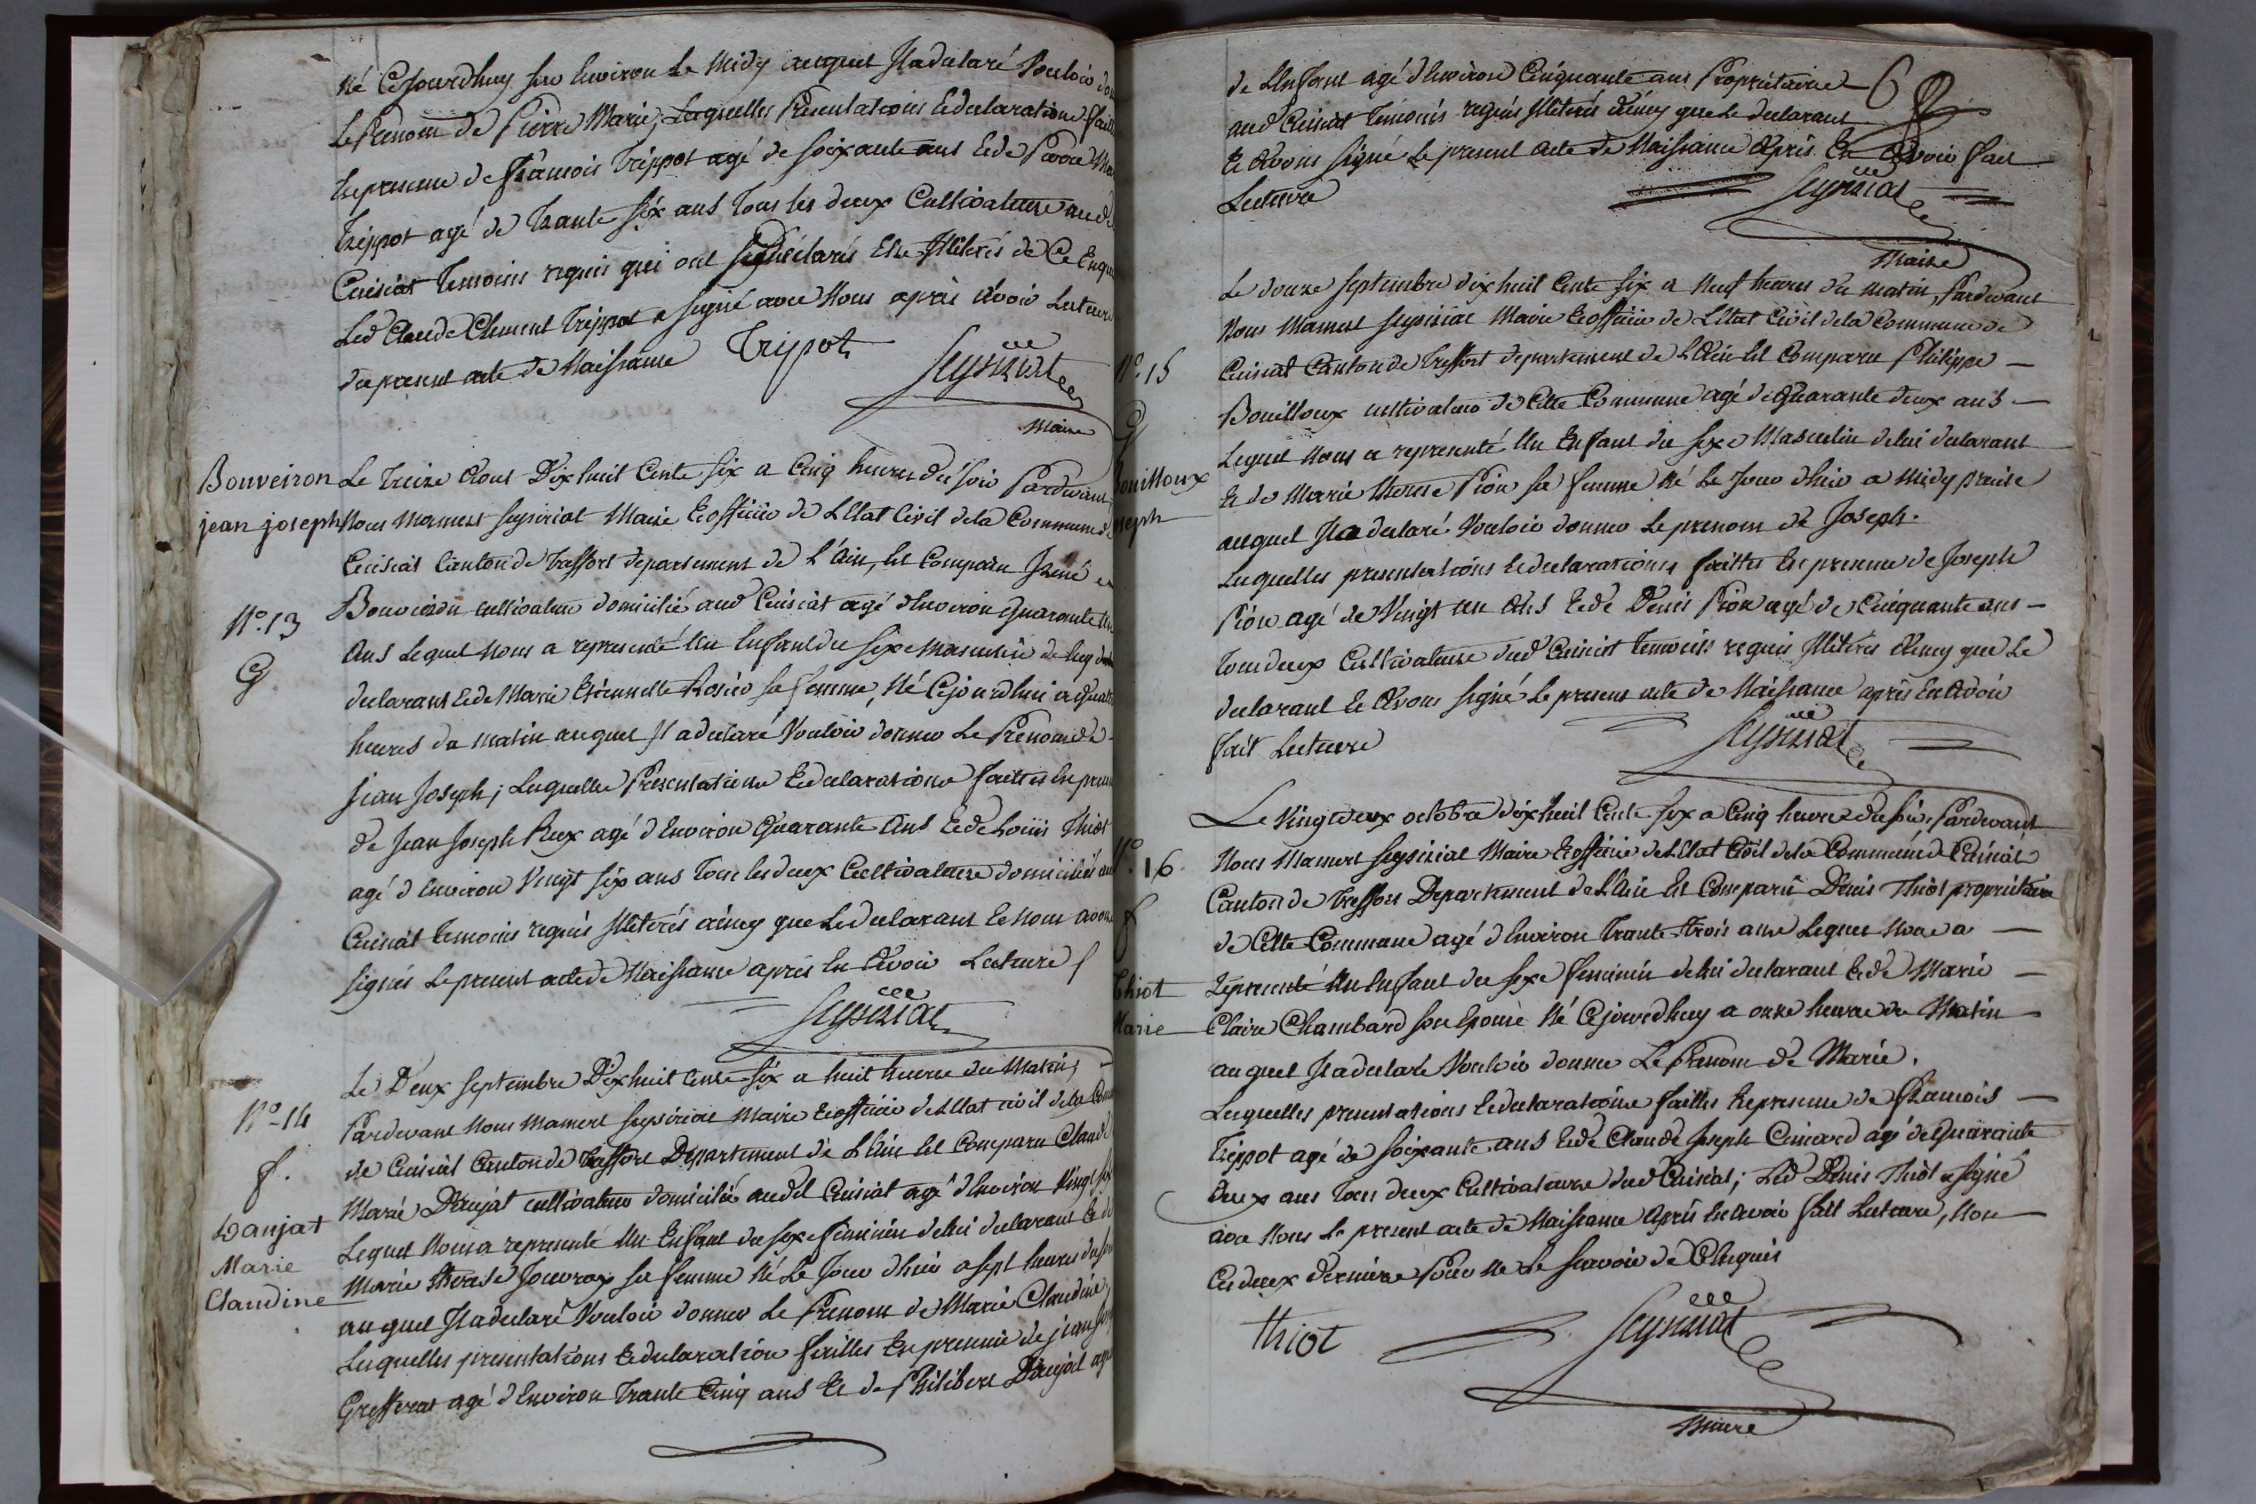 Né Cejourdhuy sur Environ Le Midy auquel Il a declaré Vouloir
Le Prenom de Pierre Marie, Lesquelles Presentations & declarations
En presence de François Trippot agé de soixante ans & de
Trippot agé de Trante six ans Tous les deux Cultivateurs aud
Cuisiat Temoins requis qui ont declarés Etre Illiterés de Ce Enquis
Led Claude Clement Trippot a signé avec Nous après avoir Lecture
du present acte de Naissance Tripot
Maire
Bouveiron
jean joseph
N°. 13
G
Le Treize Aout Dix huit Cents six a Cinq heures du soir Pardevant
Nous Mamert Seysiriat Maire & officier de L'Etat Civil de la Commune de
Cuisiat Canton de Treffort departement de L'ain, Est Comparu René
Bouveiron cultivateur domicilié aud Cuisiat agé d'Environ Quarante
Ans Lequel Nous a representé Un Enfant du sexe Masculin de luy
declarant & de Marie Etiennette Rosier sa femme, Né Cejourdhui a Quatre
heures du matin auquel Il a declaré Vouloir donner Le Prenom de
Jean Joseph; Lesquelles Presentations & declarations faittes En presence
de Jean Joseph Rux agé d'Environ Quarante Ans & de Louis Thiot
agé d'Environ Vingt six ans Tous les deux Cultivateurs domiciliés au
Cuisiat Temoins requis Illiterés ainsy que Le declarant & Nous avons
signés Le present acte de Naissance après En Avoir Lecture
Seysiriat
N°. 14
f.
Danjat
Marie
Claudine
Le Deux septembre Dix huit Cents six a huit heures du Matin,
Pardevant Nous Mamert Seysiriat Maire & officier de L'Etat civil de la Commune
de Cuisiat Canton de Treffort Departement de L'Ain Est Comparu Claude
Marie Danjat cultivateur domicilié audit Cuisiat agé d'Environ Vingt six
Lequel Nous a representé Un Enfant du sexe féminin de lui declarant & de
Marie Therese Jouvray sa femme Né Le Jour d'hier a sept heures du soir
auquel Il a declaré Vouloir donner Le Prenom de Marie Claudine
Lesquelles presentations & declaration faittes En presence de jean
Grefferat agé d'Environ Trante Cinq ans Et de Philibert Danjat agé
de L'Enfant agé d'Environ Cinquante ans Propriétaire
aud Cuisiat Temoins requis Illiterés ainsy que Le declarant
& Avons signé Le present acte de Naissance Après En Avoir fait
Lecture
Seysiriat
Maire
N°. 15
G
Bouilloux
Joseph
Le douze septembre dix huit Cents six a Neuf heures du matin, Pardevant
Nous Mamert Seysiriat Maire & officier de L'Etat Civil de la Commune de
Cuisiat Canton de Treffort departement de L'Ain Est Comparu Philippe
Bouilloux cultivateur de Cette Commune agé de Quarante deux ans
Lequel Nous a representé Un Enfant du sexe Masculin de lui declarant
& de Marie Therese Pion sa femme Né Le Jour d'hier a Midy precise
auquel Il a declaré Vouloir donner Le prenom de Joseph.
Lesquelles presentations & declarations faittes En presence de Joseph
Pion agé de Vingt un Ans & de Denis Pion agé de Cinquante ans
Tous deux Cultivateurs dud Cuisiat Temoins requis Illiterés Ainsy que Le
declarant & Avons signé Le present acte de Naissance après En Avoir
fait Lecture
Seysiriat
N°. 16
f
Thiot
Marie
Le Vingt deux octobre dix huit Cents six a Cinq heures du soir, Pardevant
Nous Mamert Seysiriat Maire & officier de L'Etat Civil de la Commune de Cuisiat
Canton de Treffort Departement de L'Ain Est Comparu Denis Thiot propriétaire
de Cette Commune agé d'Environ Trante Trois ans Lequel Nous a
representé Un Enfant du sexe féminin de lui declarant & de Marie
Claire Chambard son Epouse Né Cejourdhuy a onze heures du Matin
auquel Il a declaré Vouloir donner Le Prenom de Marie.
Lesquelles presentations & declarations faittes En presence de François
Trippot agé de soixante ans & de Claude Joseph Cuinard agé de Quarante
deux ans Tous deux Cultivateurs dud Cuisiat; Led Denis Thiot a signé
avec Nous Le present acte de Naissance Après En Avoir fait Lecture, Non
Ces deux derniers Pour Ne Le Savoir de Ce Enquis
thiot
Seysiriat
Maire